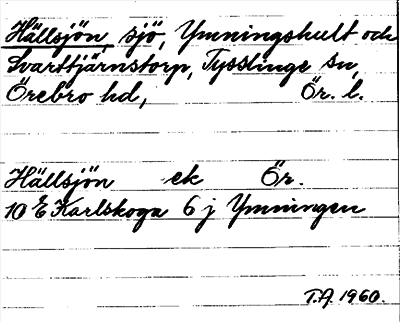 Hällsjön, sjö, Ymningshult och
Svarttjärnstorp, Tysslinge sn,
Örebro hd, Ör. l.
Hällsjön ek Ör.
10 E Karlskoga 6 j Ymningen
T.A. 1960.